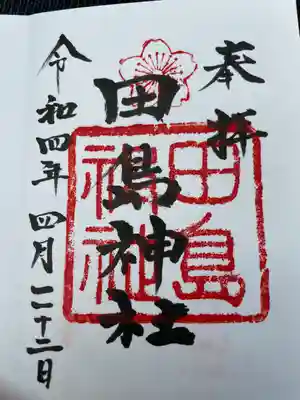 奉拝
田島神社
令和四年四月二十二日
田島
神社